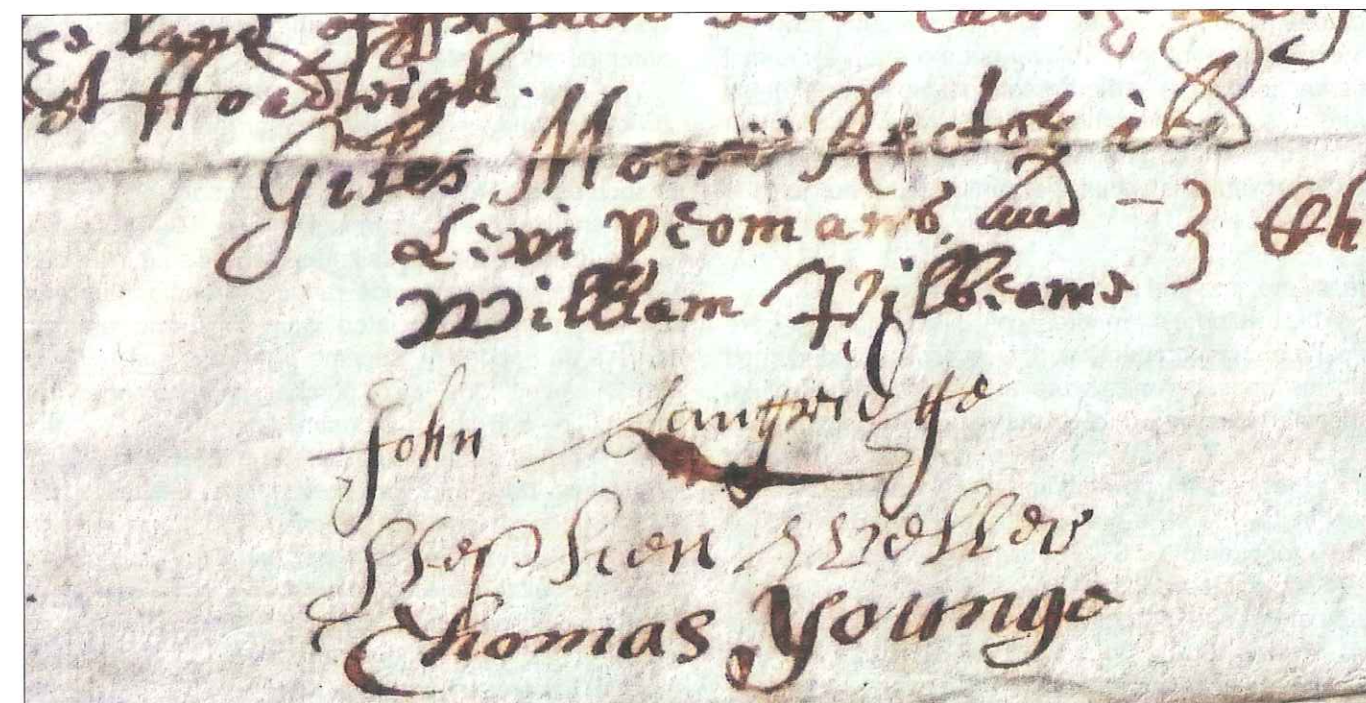 ye land of
West Hoadleigh.
Giles Moore Rector ibd
Levi Yeomans, and } Ch
William Pilbeame
John Langridge
Stephen Weller
Thomas Younge